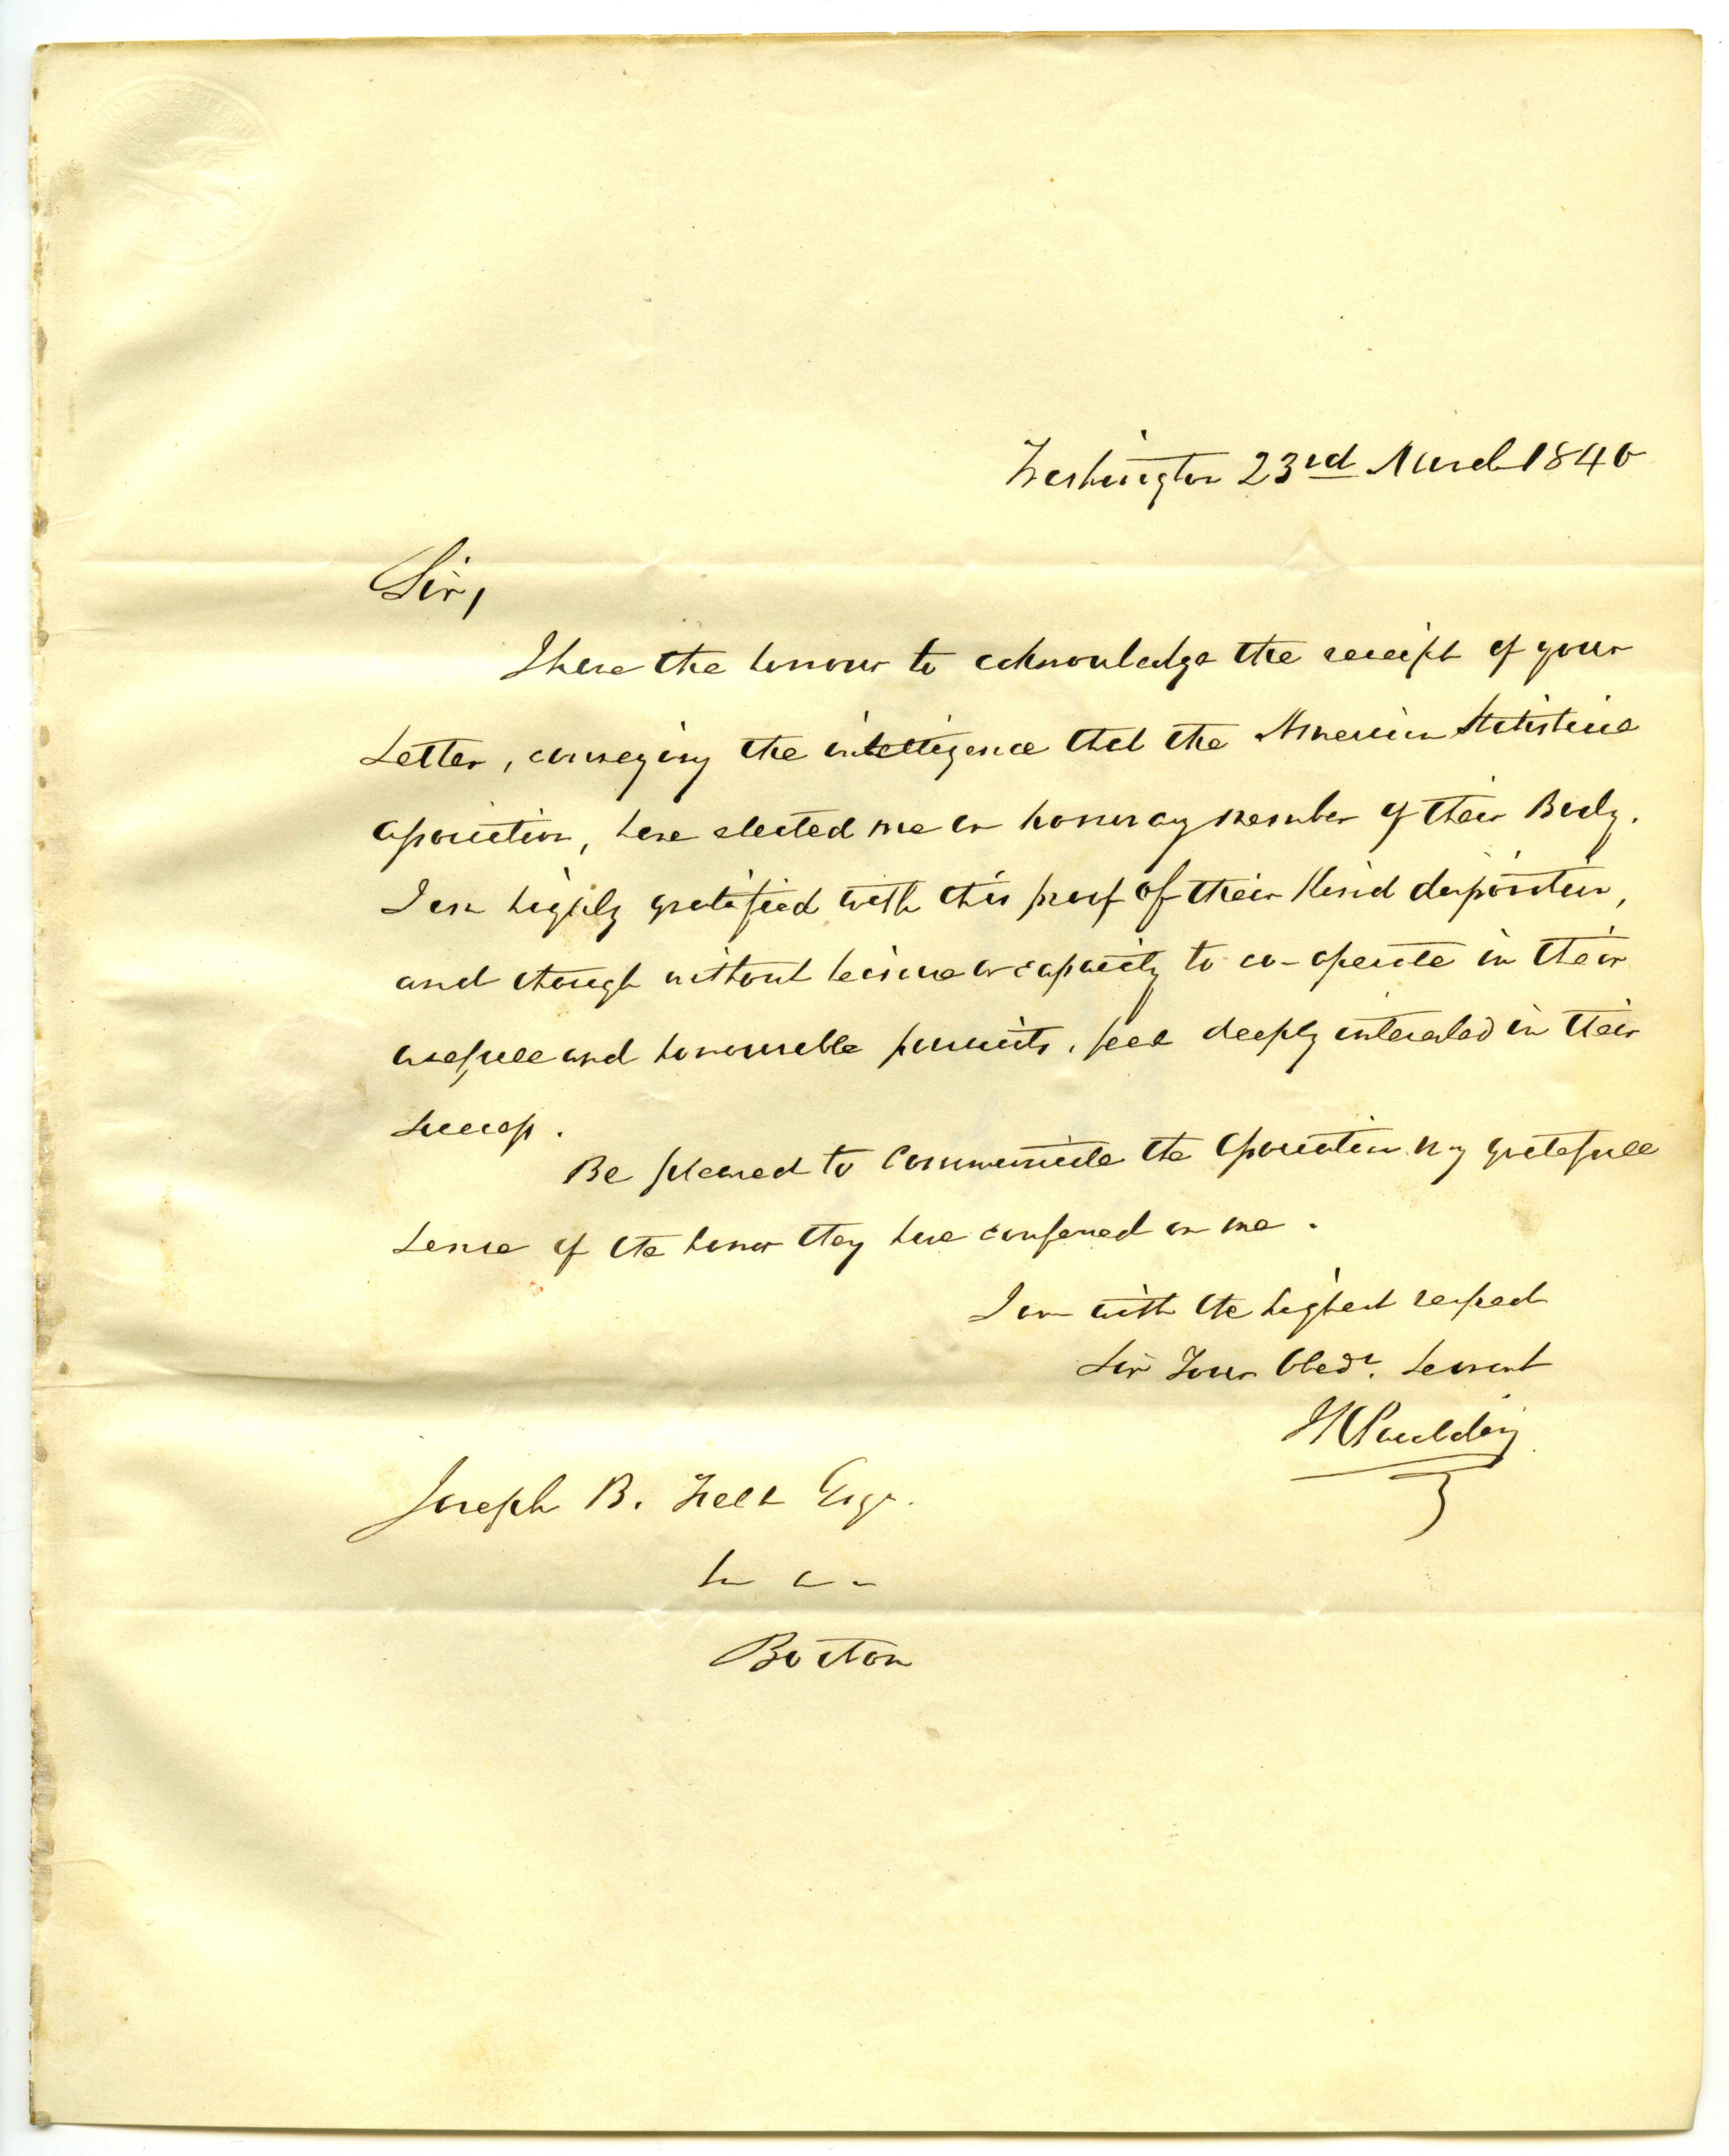 Washington 23rd March 1840
Sir,
I have the honour to acknowledge the receipt of your
Letter, conveying the intelligence that the American Statistical
Association, have elected me an honorary member of their Body.
I am highly gratified with this proof of their kind disposition,
and though without leisure or capacity to co-operate in their
usefull and honourable pursuits, feel deeply interested in their
success.
Be pleased to communicate the Association my gratefull
sense of the honor they have conferred on me.
I am with the highest respect
Sir Your Obedt. Servant
JK Paulding
Joseph B. Felt Esqr.
Boston